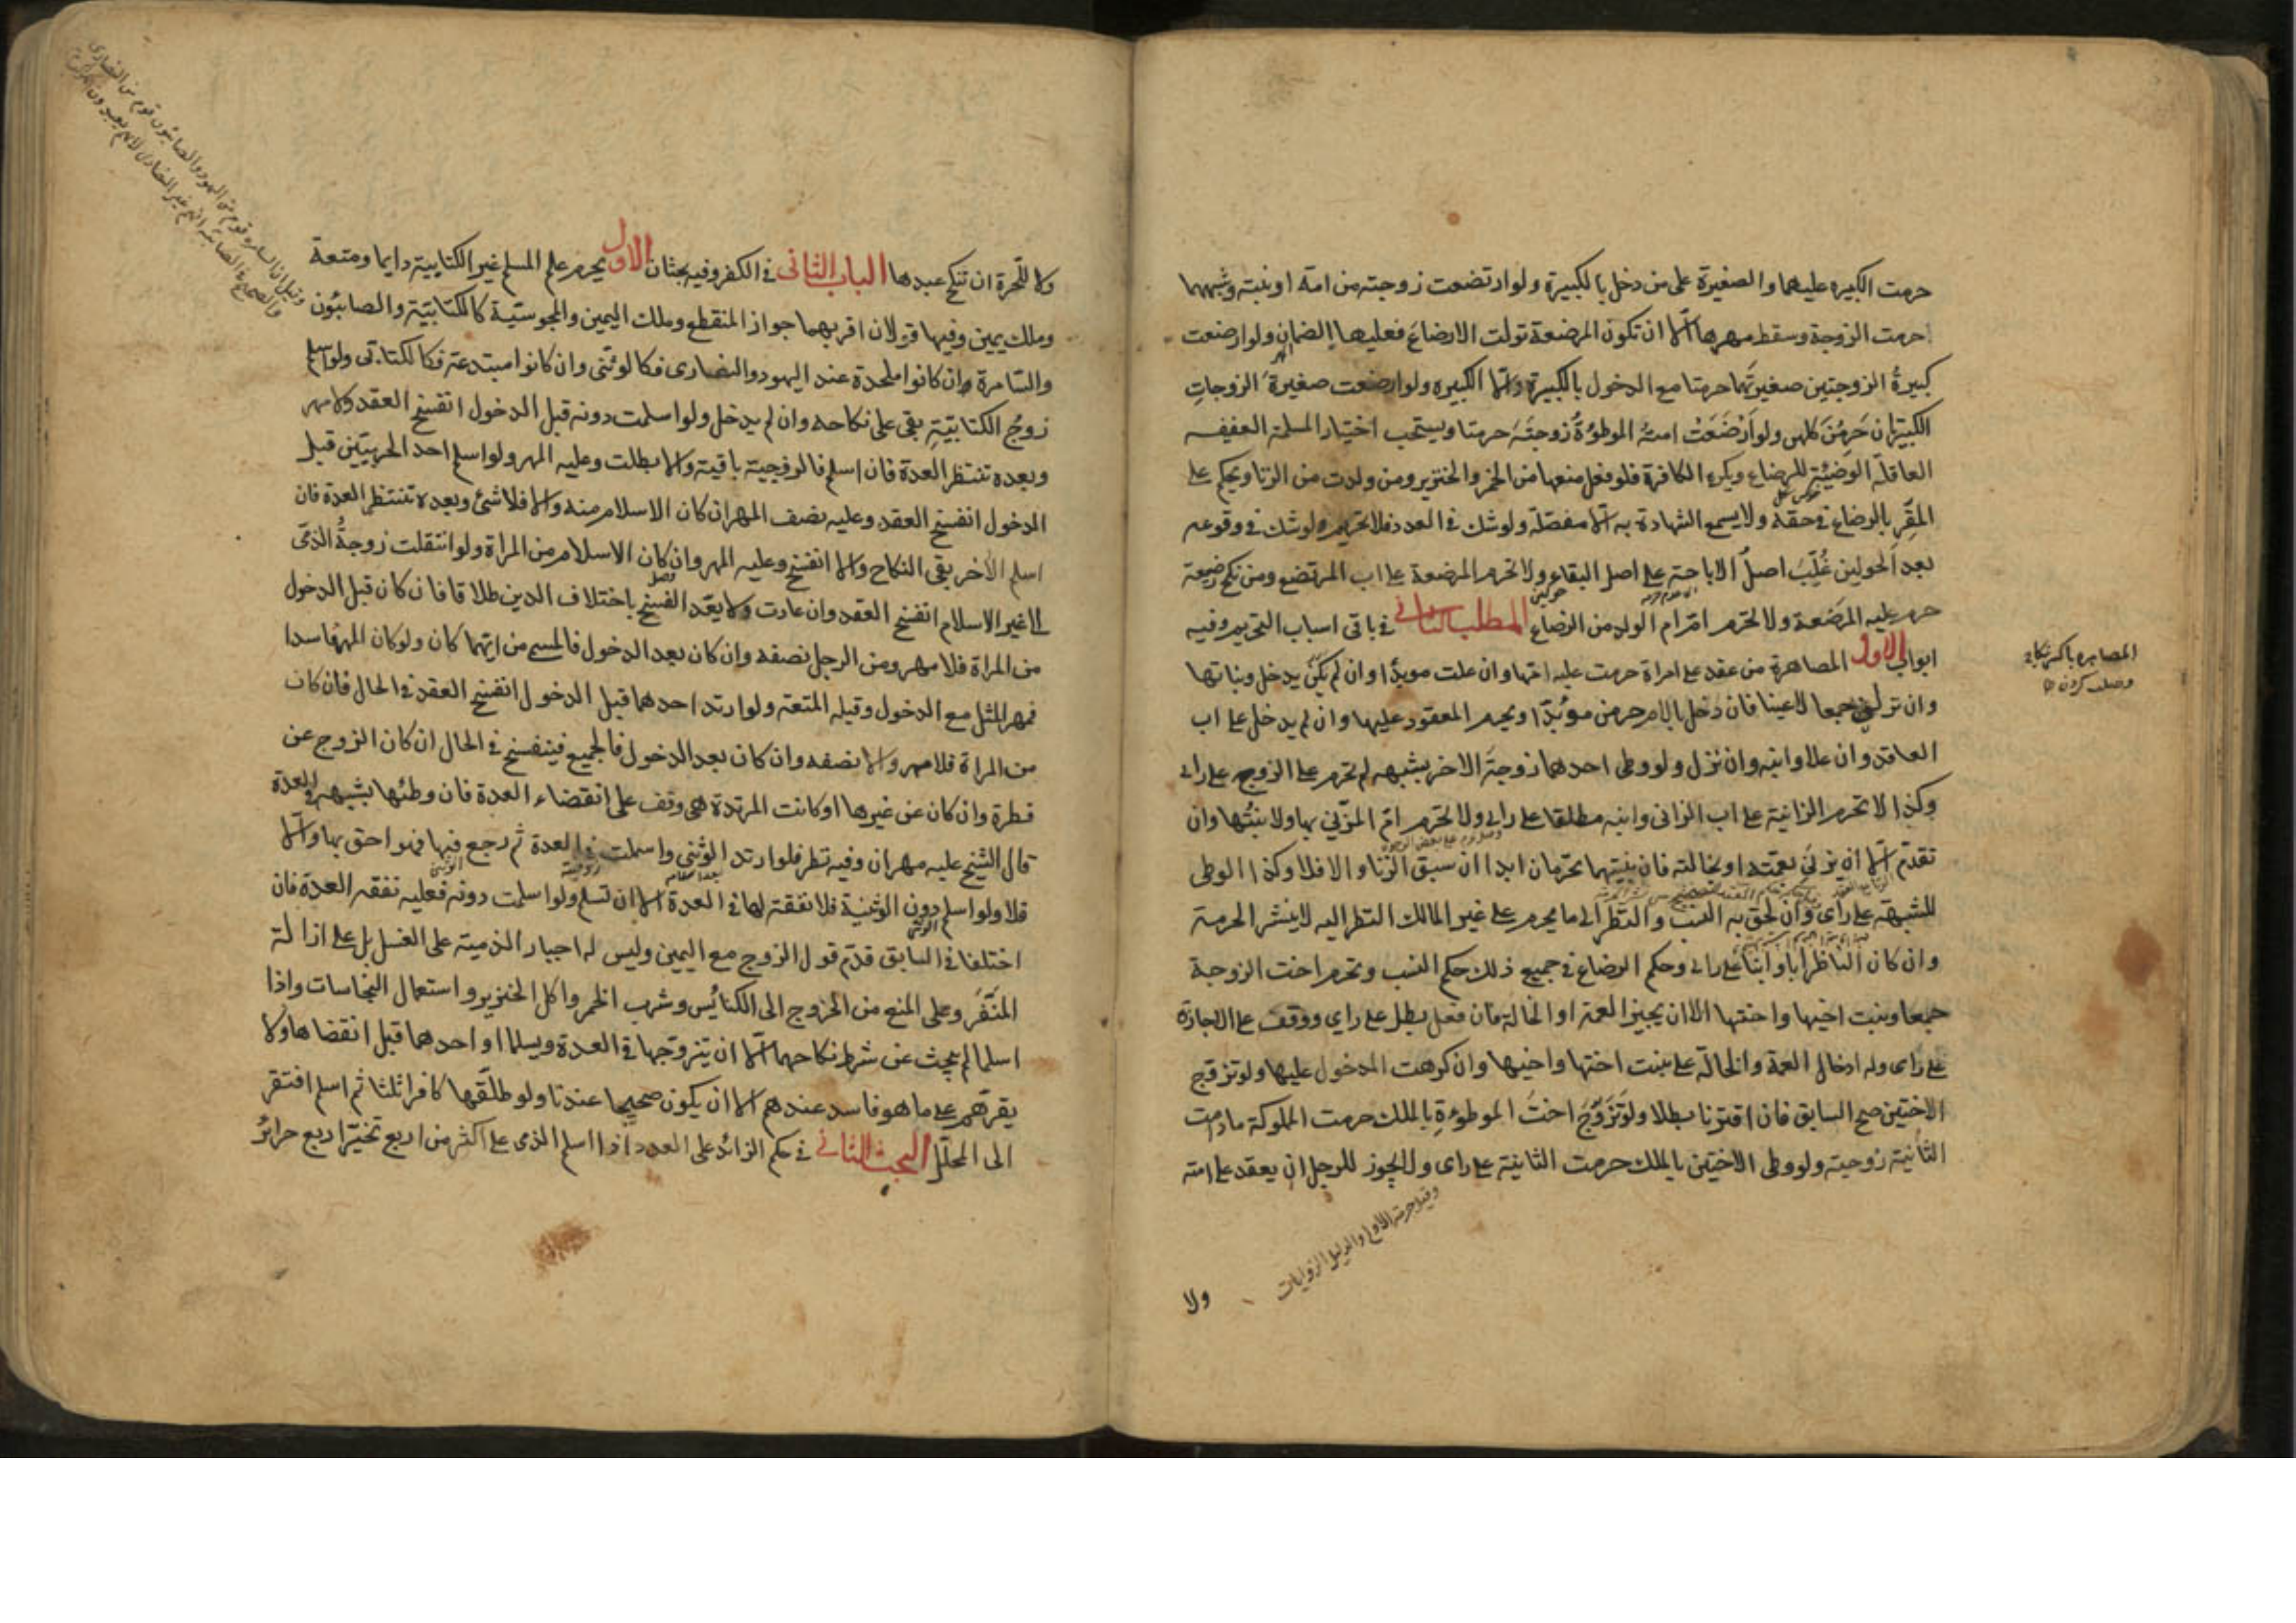 حرمت الكبيره عليهما والصغيرة على من دخل بالكبيرة ولو ارتضعت زوجته من امة او بنته وشبههما
حرمت الزوجة وسقط مهرها الا ان تكون المرضعة تولت الارضاع فعليها الضمان ولو ارضعت
كبيرة الزوجتين صغيرتهما حرمتا مع الدخول بالكبيرة والا الكبيره ولو ارضعت صغيرة الزوجات
الكبيرتان حرمن كلهن ولو ارضعت امته الموطوءة زوجته حرمتا ويستحب اختيار المسلمة العفيفه
العاقلة الوضيئة للرضاع ويكره الكافرة فلو فعل منعها من الخمر والخنزير ومن ولدت من الزنا ويحكم على
المقر بالرضاع في حقه ولا يسمع الشهادة به الا مفصلة ولو شك في العدد فلا تحريم ولو شك في وقوعه
بعد الحولين غلب اصل الاباحة على اصل البقاء ولا تحرم المرضعة على اب المرتضع ومن نكح رضيعة
حرم عليه المرضعة ولا تحرم ام ام الولد من الرضاع المطلب الثاني في باقى اسباب التحريم وفيه
ابواب الاول المصاهرة من عقد على امراة حرمت عليه امها وان علت مويدا وان لم يكن يدخل وبناتها
وان نزلن جمعا لا عينا فان دخل بالام حرمن مؤبدا ويحرم المعقود عليها وان لم يدخل على اب
العاقد وان علا وابنه وان نزل ولو وطى احدهما زوجة الاخر بشبهه لم تحرم على الزوج على راى
وكذا لا تحرم الزانية على اب الزانى وابنه مطلقا على راى ولا تحرم ام المزنى بها ولا بنتها وان
تقدم الا ان يزنى بعمته او بخالته فان بنتيهما تحرمان ابدا ان سبق الزنا والا فلا وكذا الوطى
للشبهة على راى وان لحق به النسب والنظر الى ما يحرم على غير المالك النظر اليه لا ينشر الحرمة
وان كان الناظر ابا وابنا على راى وحكم الرضاع في جميع ذلك حكم النسب وتحرم اخت الزوجة
جمعا وبنت اخيها واختها الا ان يجيز العمة او الخالة فان فعل بطل على راي ووقف على الاجازة
على راى وله ادخال العمة والخالة على بنت اختها واخيها وان كرهت المدخول عليها ولو تزوج
الاختين صح السابق فان اقترنا بطلا ولو تزوج اخت الموطوءة بالملك حرمت المملوكة مادامت
الثانية زوجيته ولو وطى الاختين بالملك حرمت الثانية على راى ولا يجوز للرجل ان يعقد على امته
وقيل حرمة الاولى والدليل الروايات
ولا
ولا للحرة ان تنكح عبدها الباب الثانى في الكفر وفيه بحثان الاول يحرم على المسلم غير الكتابية دايما ومتعة
وملك يمين وفيها قولان اقربهما جواز المنقطع وملك اليمين والمجوسية كالكتابية والصابئون
والسامرة وان كانوا ملحدة عند اليهود والنصارى فكالوثنى وان كانوا مبتدعة فكالكتابى ولو اسلم
زوج الكتابية بقى على نكاحه وان لم يدخل ولو اسلمت دونه قبل الدخول انفسخ العقد ولا مهر
وبعده تنتظر العدة فان اسلم فالزوجية باقية والا بطلت وعليه المهر ولو اسلم احد الحربيين قبل
الدخول انفسخ العقد وعليه نصف المهر ان كان الاسلام منه والا فلا شئ وبعده تنتظر العدة فان
اسلم الاخر بقى النكاح والا انفسخ وعليه المهر وان كان الاسلام من المراة ولو انتقلت زوجة الذمى
الى غير الاسلام انفسخ العقد وان عادت ولا يعد الفسخ باختلاف الدين طلاقا فان كان قبل الدخول
من المراة فلا مهر ومن الرجل نصفه وان كان بعد الدخول فالمسمى من ايهما كان ولو كان المهر فاسدا
فمهر المثل مع الدخول وقبله المتعة ولو ارتد احدهما قبل الدخول انفسخ العقد في الحال فان كان
من المراة فلا مهر والا نصفه وان كان بعد الدخول فالجميع فينفسخ في الحال ان كان الزوج عن
فطرة وان كان عن غيرها او كانت المرتدة هى وقف على انقضاء العدة فان وطئها بشبهه في العدة
قال الشيخ عليه مهران وفيه نظر فلو ارتد الوثنى واسلمت في العدة ثم رجع فيها فهو احق بها والا
فلا ولو اسلم دون الوثنية فلا نفقة لها في العدة الا ان تسلم ولو اسلمت دونه فعليه نفقة العدة فان
اختلفا في السابق قدم قول الزوج مع اليمين وليس له اجبار الذمية على الغسل بل على ازالة
المنفر وعلى المنع من الخروج الى الكنائس وشرب الخمر واكل الخنزير واستعمال النجاسات واذا
اسلما لم يبحث عن شرط نكاحهما الا ان يتزوجها في العدة ويسلما او احدهما قبل انقضاها ولا
يقرهم على ما هو فاسد عندهم الا ان يكون صحيحا عندنا ولو طلقها كافرا ثلثا ثم اسلم افتقر
الى المحلل البحث الثانى في حكم الزائد على العدد اذا اسلم الذمى على اكثر من اربع تخير اربع حرائر